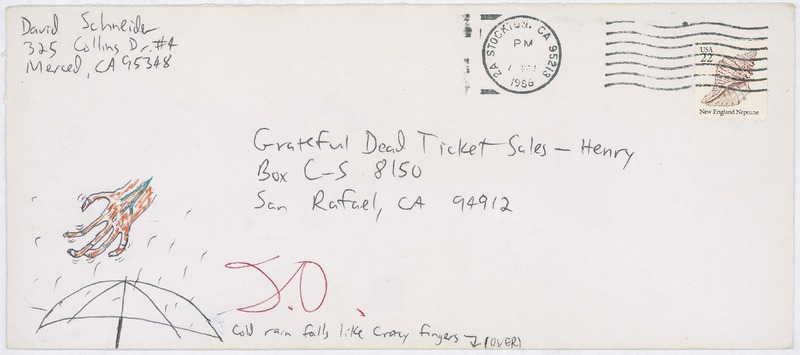 David Schneider
325 Collins Dr. #4
Merced, CA 95348
2A STOCKTON, CA 95213
PM
1986
USA
22
New England Neptune
Grateful Dead Ticket Sales - Henry
Box C-S 8150
San Rafael, CA 94912
S.O.
Cold rain falls like crazy fingers → (OVER)